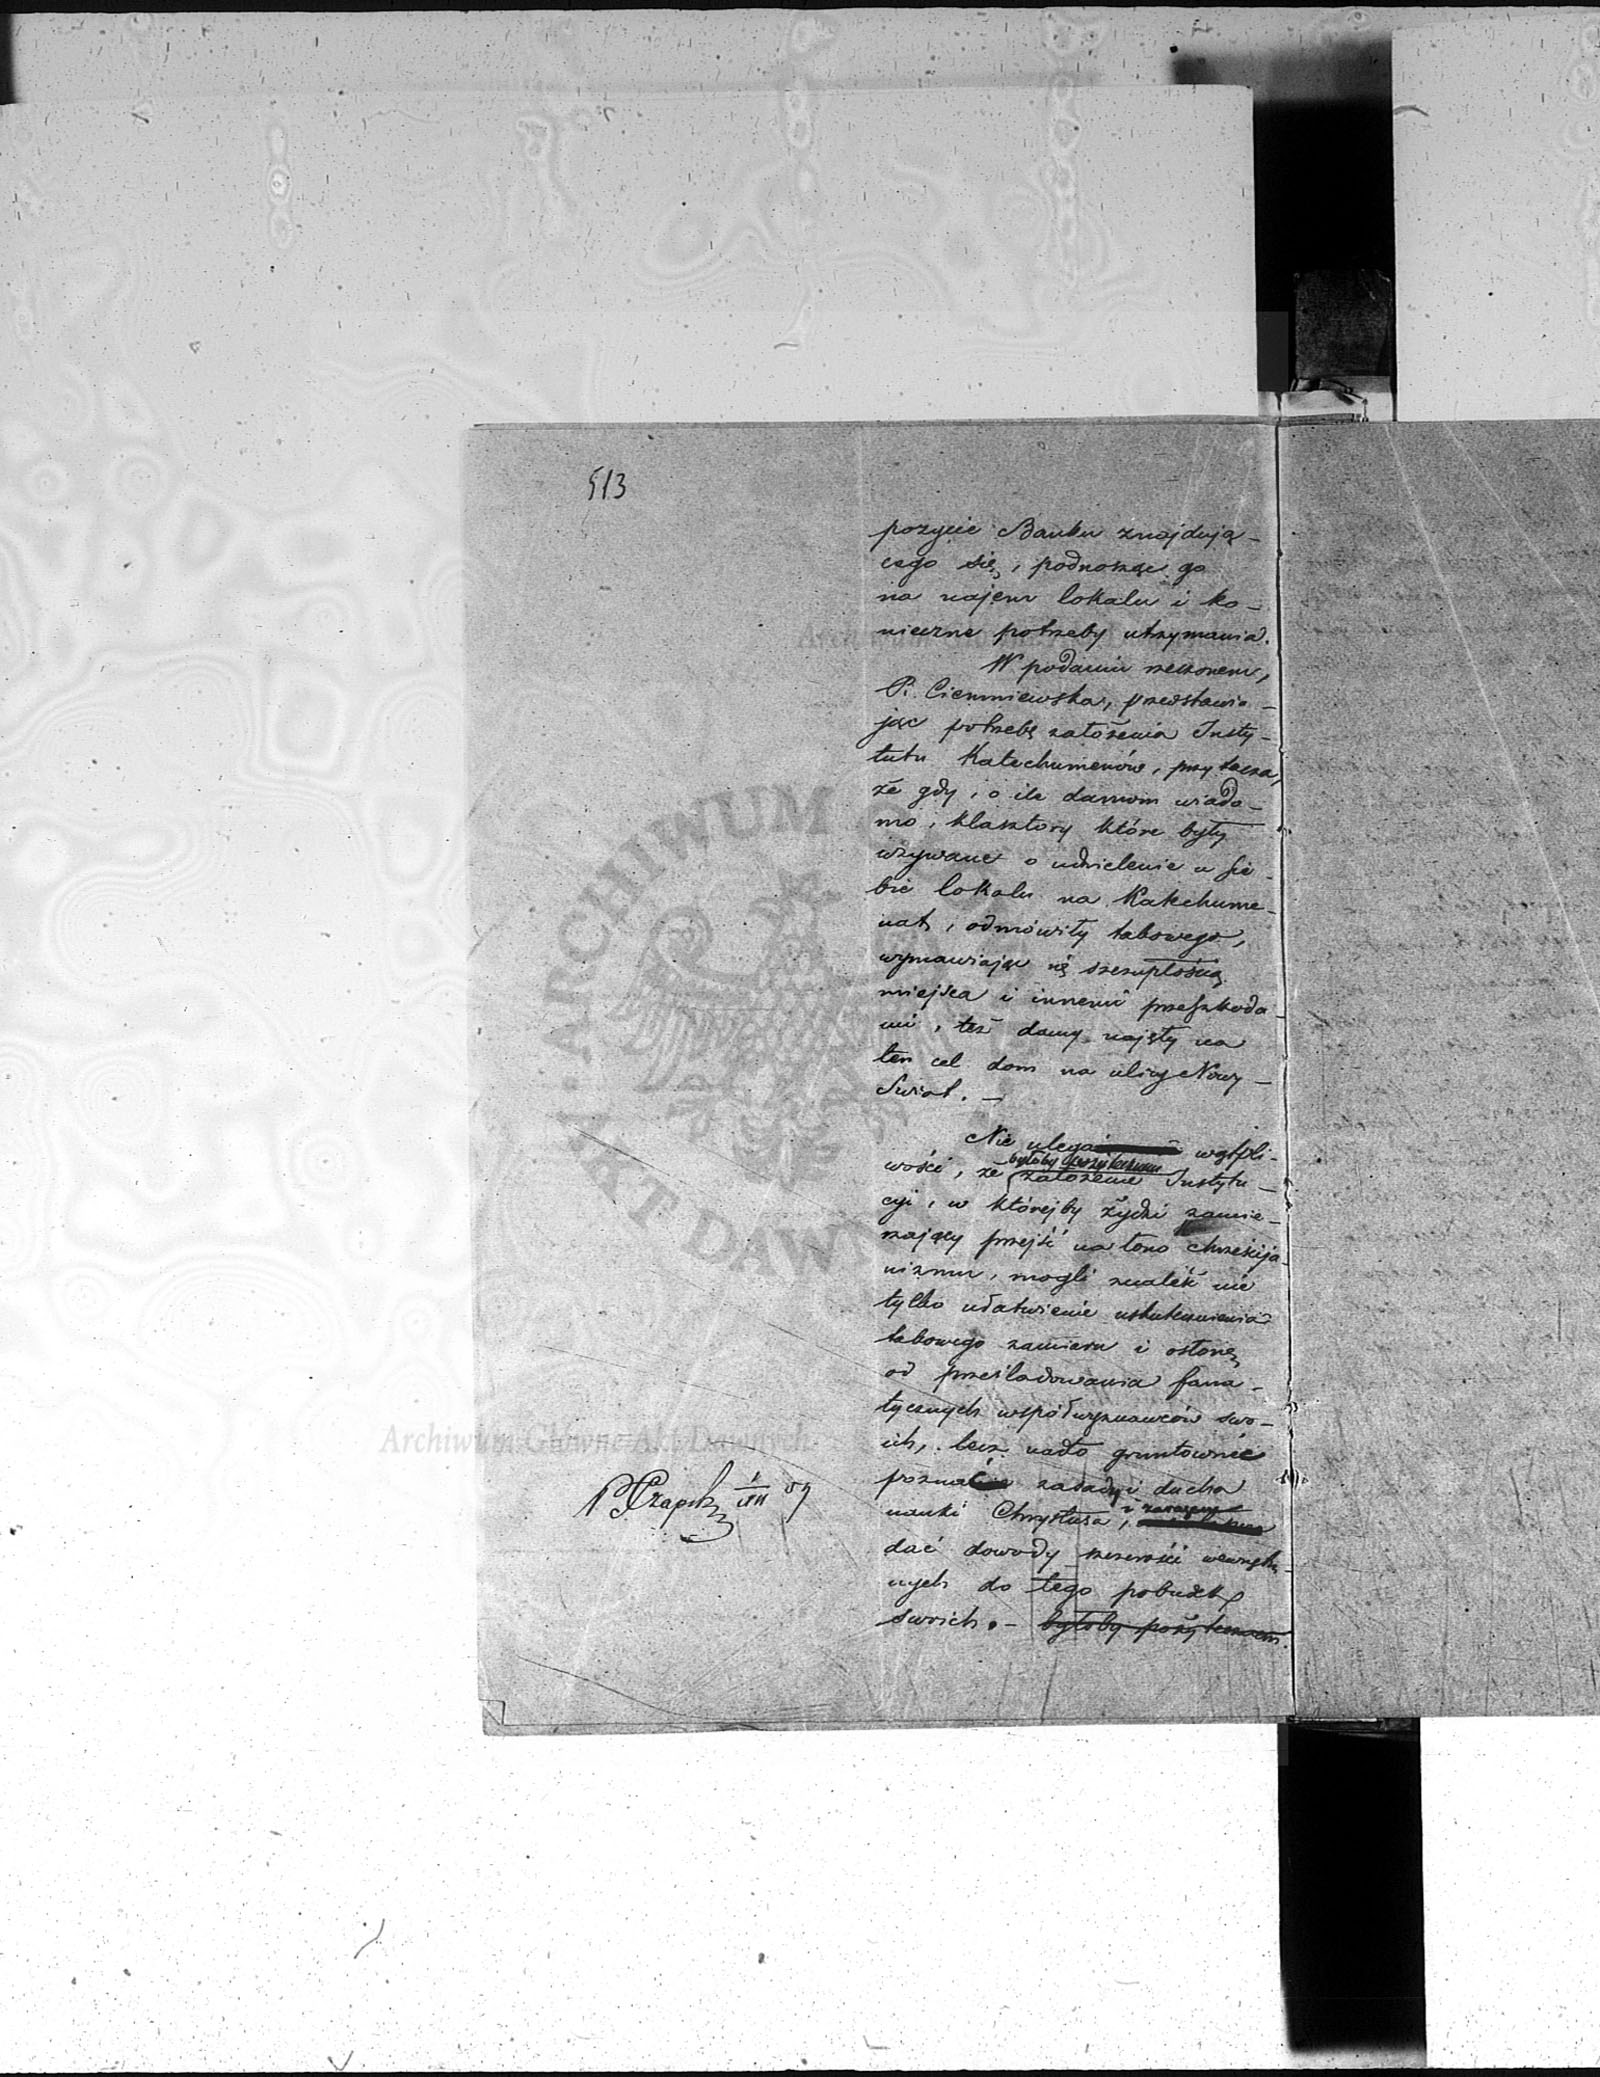 513
pozycie Banku znajdują-
cego się, podnosząc go
na najem lokalu i ko-
nieczne potrzeby utrzymania.
W podaniu rzeczonem,
P. Ciemniewska, przedstawia-
jąc potrzebę założenia Insty-
tutu Katechumenów, przytacza,
że gdy, o ile damom wiado-
mo, klasztory które były
wzywane o udzielenie u sie-
bie lokalu na Katechume-
nat, odmówiły takowego,
wymawiając się szczupłością
miejsca i innemi przeszkoda-
mi, też damy najęły na
ten cel dom na ulicy Nowy-
Świat. —
Nie ulega wątpli-
wości, że założenie Instytu-
byłoby pożytecznem
cyi, w którejby żydzi zamie-
rzający przejść na łono chrześcija-
nizmu, mogli znaleść nie
tylko ułatwienie uskutecznienia
takowego zamiaru i osłonę
od prześladowania fana-
tycznych współwyznawców swo-
ich, lecz nadto gruntownie
poznać zasady i ducha
nauki Chrystusa, i zarazem
dać dowody szczerości wewnętrz-
nych do tego pobudek
swoich. — byłoby pożytecznem.
VIII 59
ARCHIWUM GŁÓWNE AKT DAWNYCH
Archiwum Główne Akt Dawnych